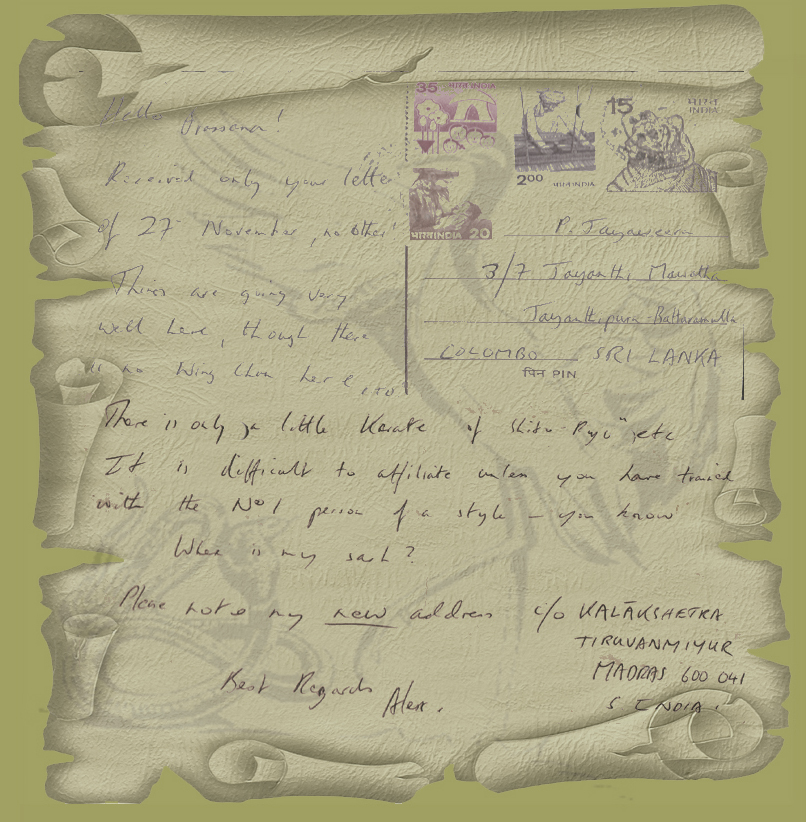 Hello Prassena!
Received only your letter
of 27 November, no other!
Things are going very
well here, though there
is no Wing Chun here
There is only a little Karate of Shito-Ryu" etc
It is difficult to affiliate unless you have trained
with the No 1 person of a style – you know
When is my sash?
Please note my new address
Best Regards
Alex.
35 भारत INDIA
2.00 भारत INDIA
15 भारत INDIA
भारत INDIA 20
P. Jayaweera
3/7 Jayanthi Mawatha
Jayanthipura Battaramulla
COLOMBO SRI LANKA
पिन PIN
c/o KALĀKSHETRA
TIRUVANMIYUR
MADRAS 600 041
S INDIA.